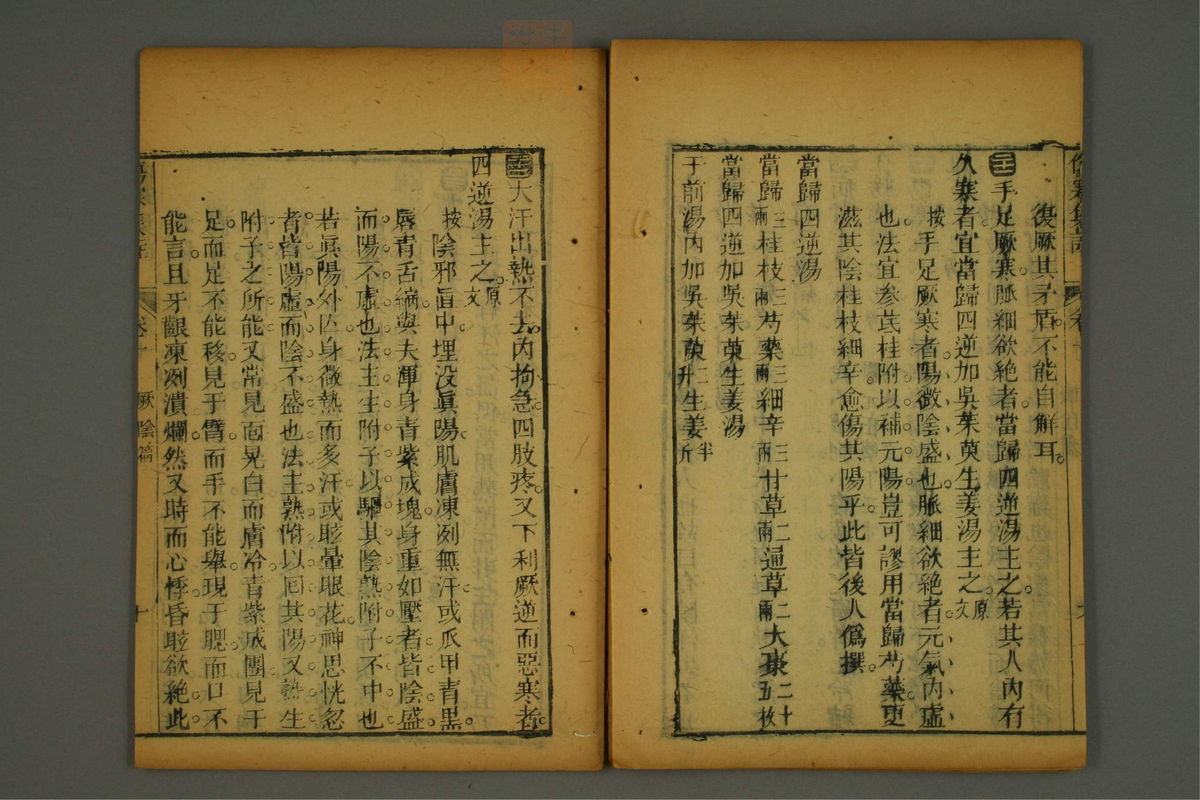 復厥其矛盾不能自解耳。
手足厥寒。脈細欲絶者。當歸四逆湯主之。若其人內有
久寒者。宜當歸四逆加吳茱萸生姜湯主之。原文
按手足厥寒者。陽微陰盛也。脈細欲絶者。元氣內虛
也。法宜參芪桂附。以補元陽。豈可謬用當歸芍藥。更
滋其陰。桂枝細辛。愈傷其陽乎。此皆後人僞撰。
當歸四逆湯
當歸三兩桂枝三兩芍藥三兩細辛三兩甘草二兩通草二兩大棗二十五枚
當歸四逆加吳茱萸生姜湯
于前湯內加吳茱萸二升生姜半斤
大汗出。熱不去。內拘急。四肢疼。又下利厥逆而惡寒者。
四逆湯主之。原文
按陰邪直中。埋沒眞陽。肌膚凍冽無汗。或爪甲青黑。
唇青舌縮。與夫渾身青紫成塊。身重如壓者。皆陰盛
而陽不虛也。法主生附子以驅其陰。熟附子不中也。
若眞陽外亡。身微熱而多汗。或眩暈眼花。神思恍忽
者。皆陽虛而陰不盛也。法主熟附以回其陽。又熟生
附子之所能。又常見面晃白而膚冷。青紫成團。見于
足而足不能移。見于臂而手不能舉。現于腮而口不
能言。且牙齦凍冽潰爛。然又時而心悸昏眩欲絶。此
卷十
厥陰篇
十